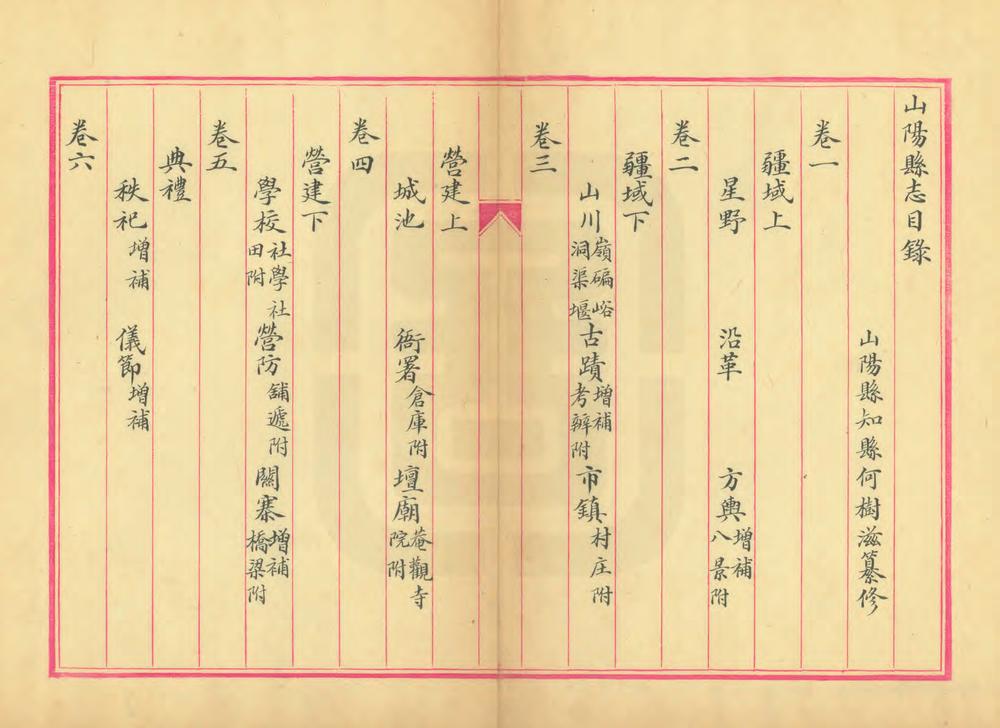 山陽縣志目錄
山陽縣知縣何樹滋纂修
卷一
疆域上
星野 沿革 方輿增補八景附
卷二
疆域下
山川嶺碥峪洞渠堰古蹟增補考辨附市鎮村庄附
卷三
營建上
城池 衙署倉庫附壇廟菴觀寺院附
卷四
營建下
學校社學社田附營防舖遞附關寨增補橋梁附
卷五
典禮
秩祀增補 儀節增補
卷六